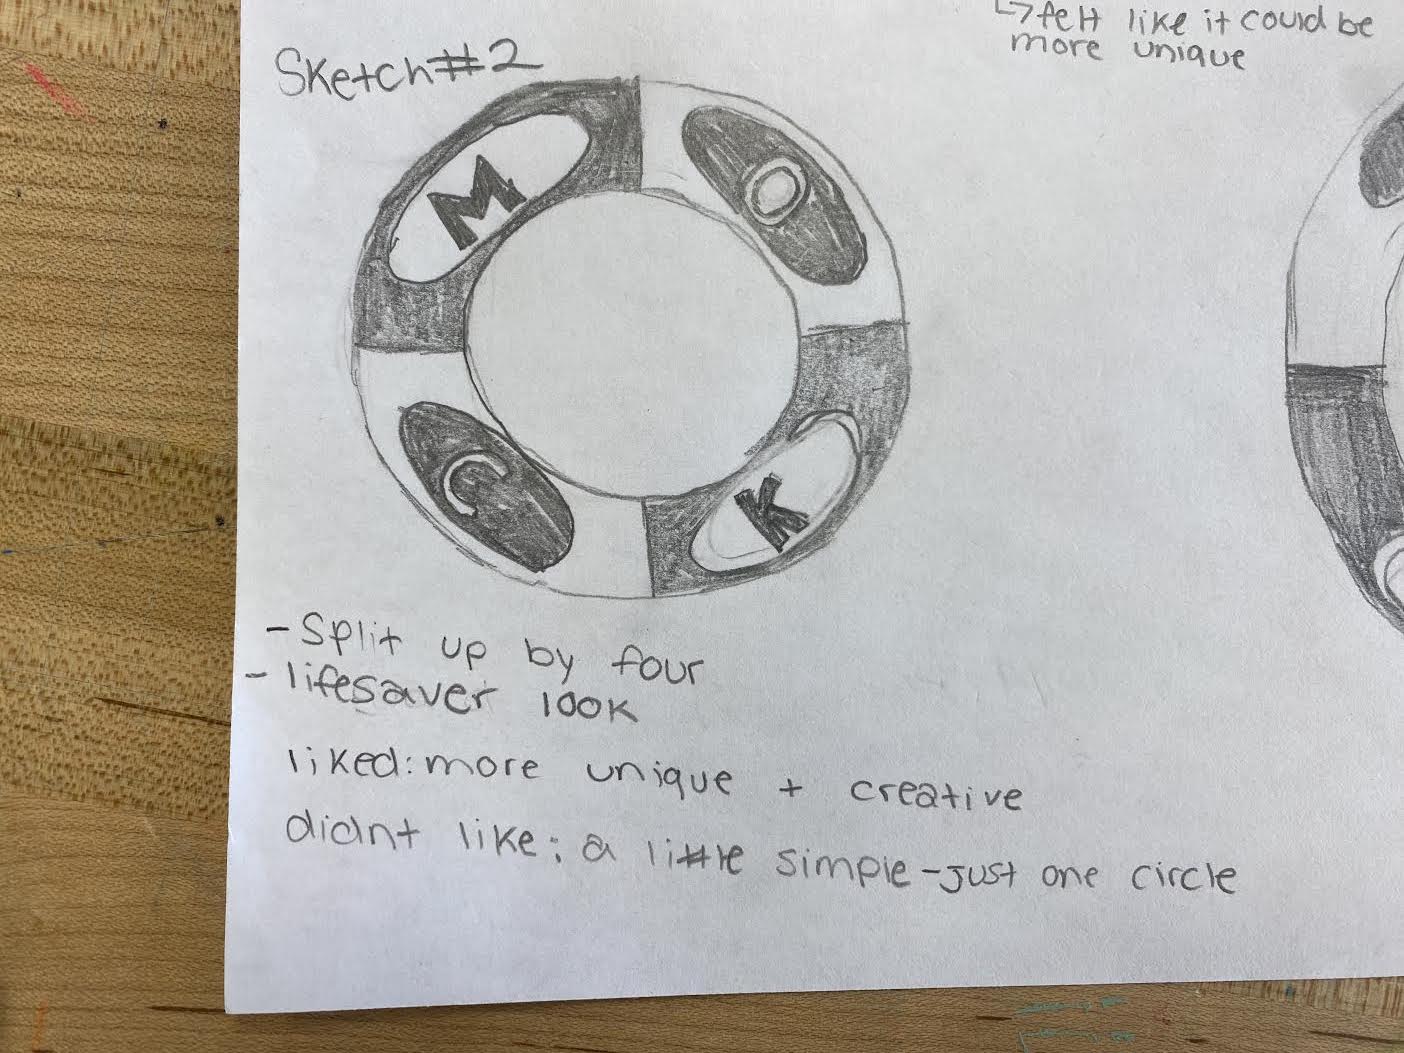 ↳ felt like it could be
more unique
Sketch #2
M
O
C
K
- Split up by four
- lifesaver look
liked: more unique + creative
didnt like: a little simple - just one circle